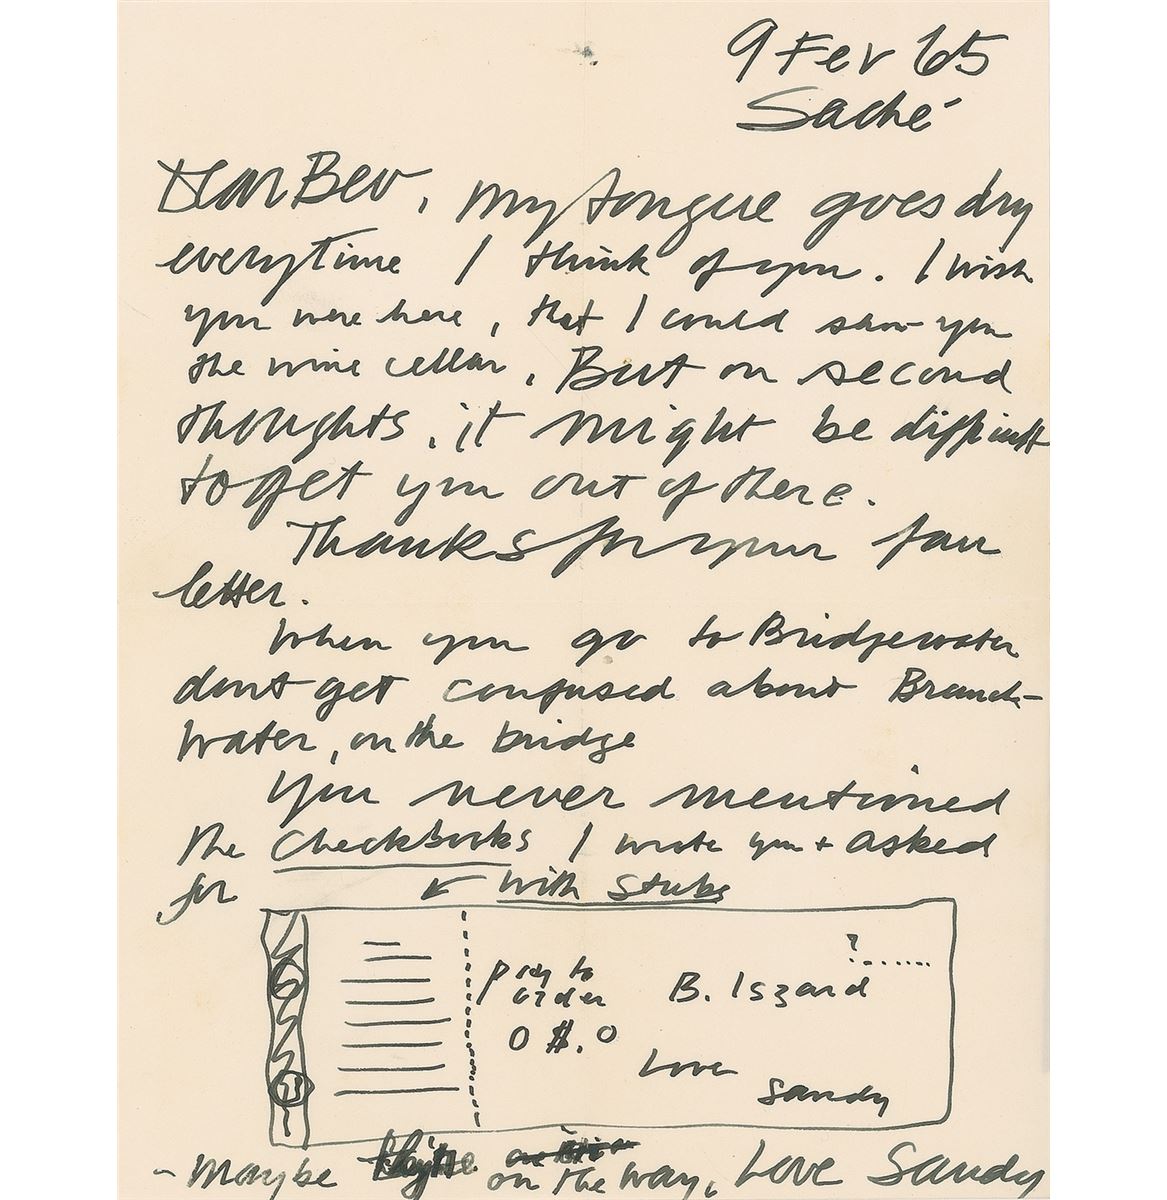 9 Fev 65
Saché
Dear Bev, my tongue goes dry
everytime I think of you. I wish
you were here, that I could show you
the wine cellar. But on second
thoughts, it might be difficult
to get you out of there.
Thanks for your fair
letter.
When you go to Bridgewater
dont get confused about Branch-
water, on the bridge
You never mentioned
the checkbooks I wrote you + asked
for
with stubs
?
pay to
order
B. Iszard
0 $.0
Love
Sandy
- Maybe on the way, Love Sandy